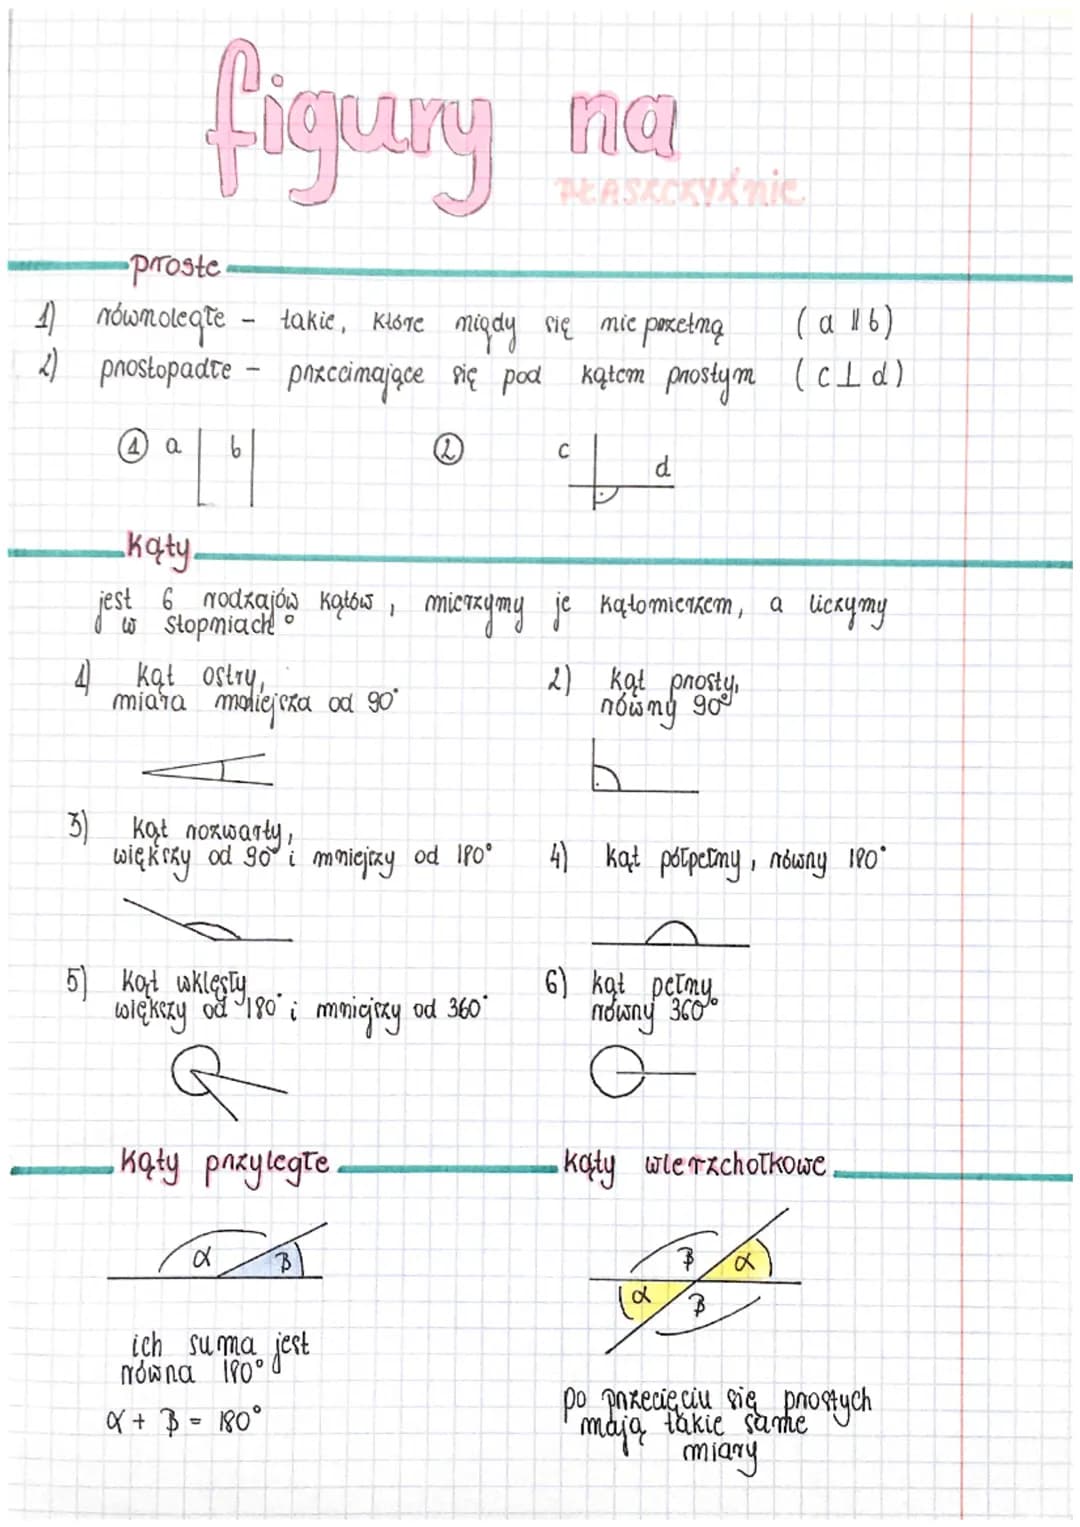 figury na
PŁASZCZYŹnie
proste
1) równoległe - takie, które nigdy się nie przetną (a || b)
2) prostopadłe - przecinające się pod kątem prostym (c ⊥ d)
① a b ② c d
kąty
jest 6 rodzajów kątów, mierzymy je kątomierzem, a liczymy
w stopniach °
1) kąt ostry, 2) kąt prosty,
miara mniejsza od 90° równy 90°
3) kąt rozwarty,
większy od 90° i mniejszy od 180° 4) kąt półpełny, równy 180°
5) kąt wklęsły 6) kąt pełny
większy od 180° i mniejszy od 360° równy 360°
kąty przyległe kąty wierzchołkowe
α β β α
α β
ich suma jest
równa 180°
α + β = 180°
po przecięciu się prostych
mają takie same
miary